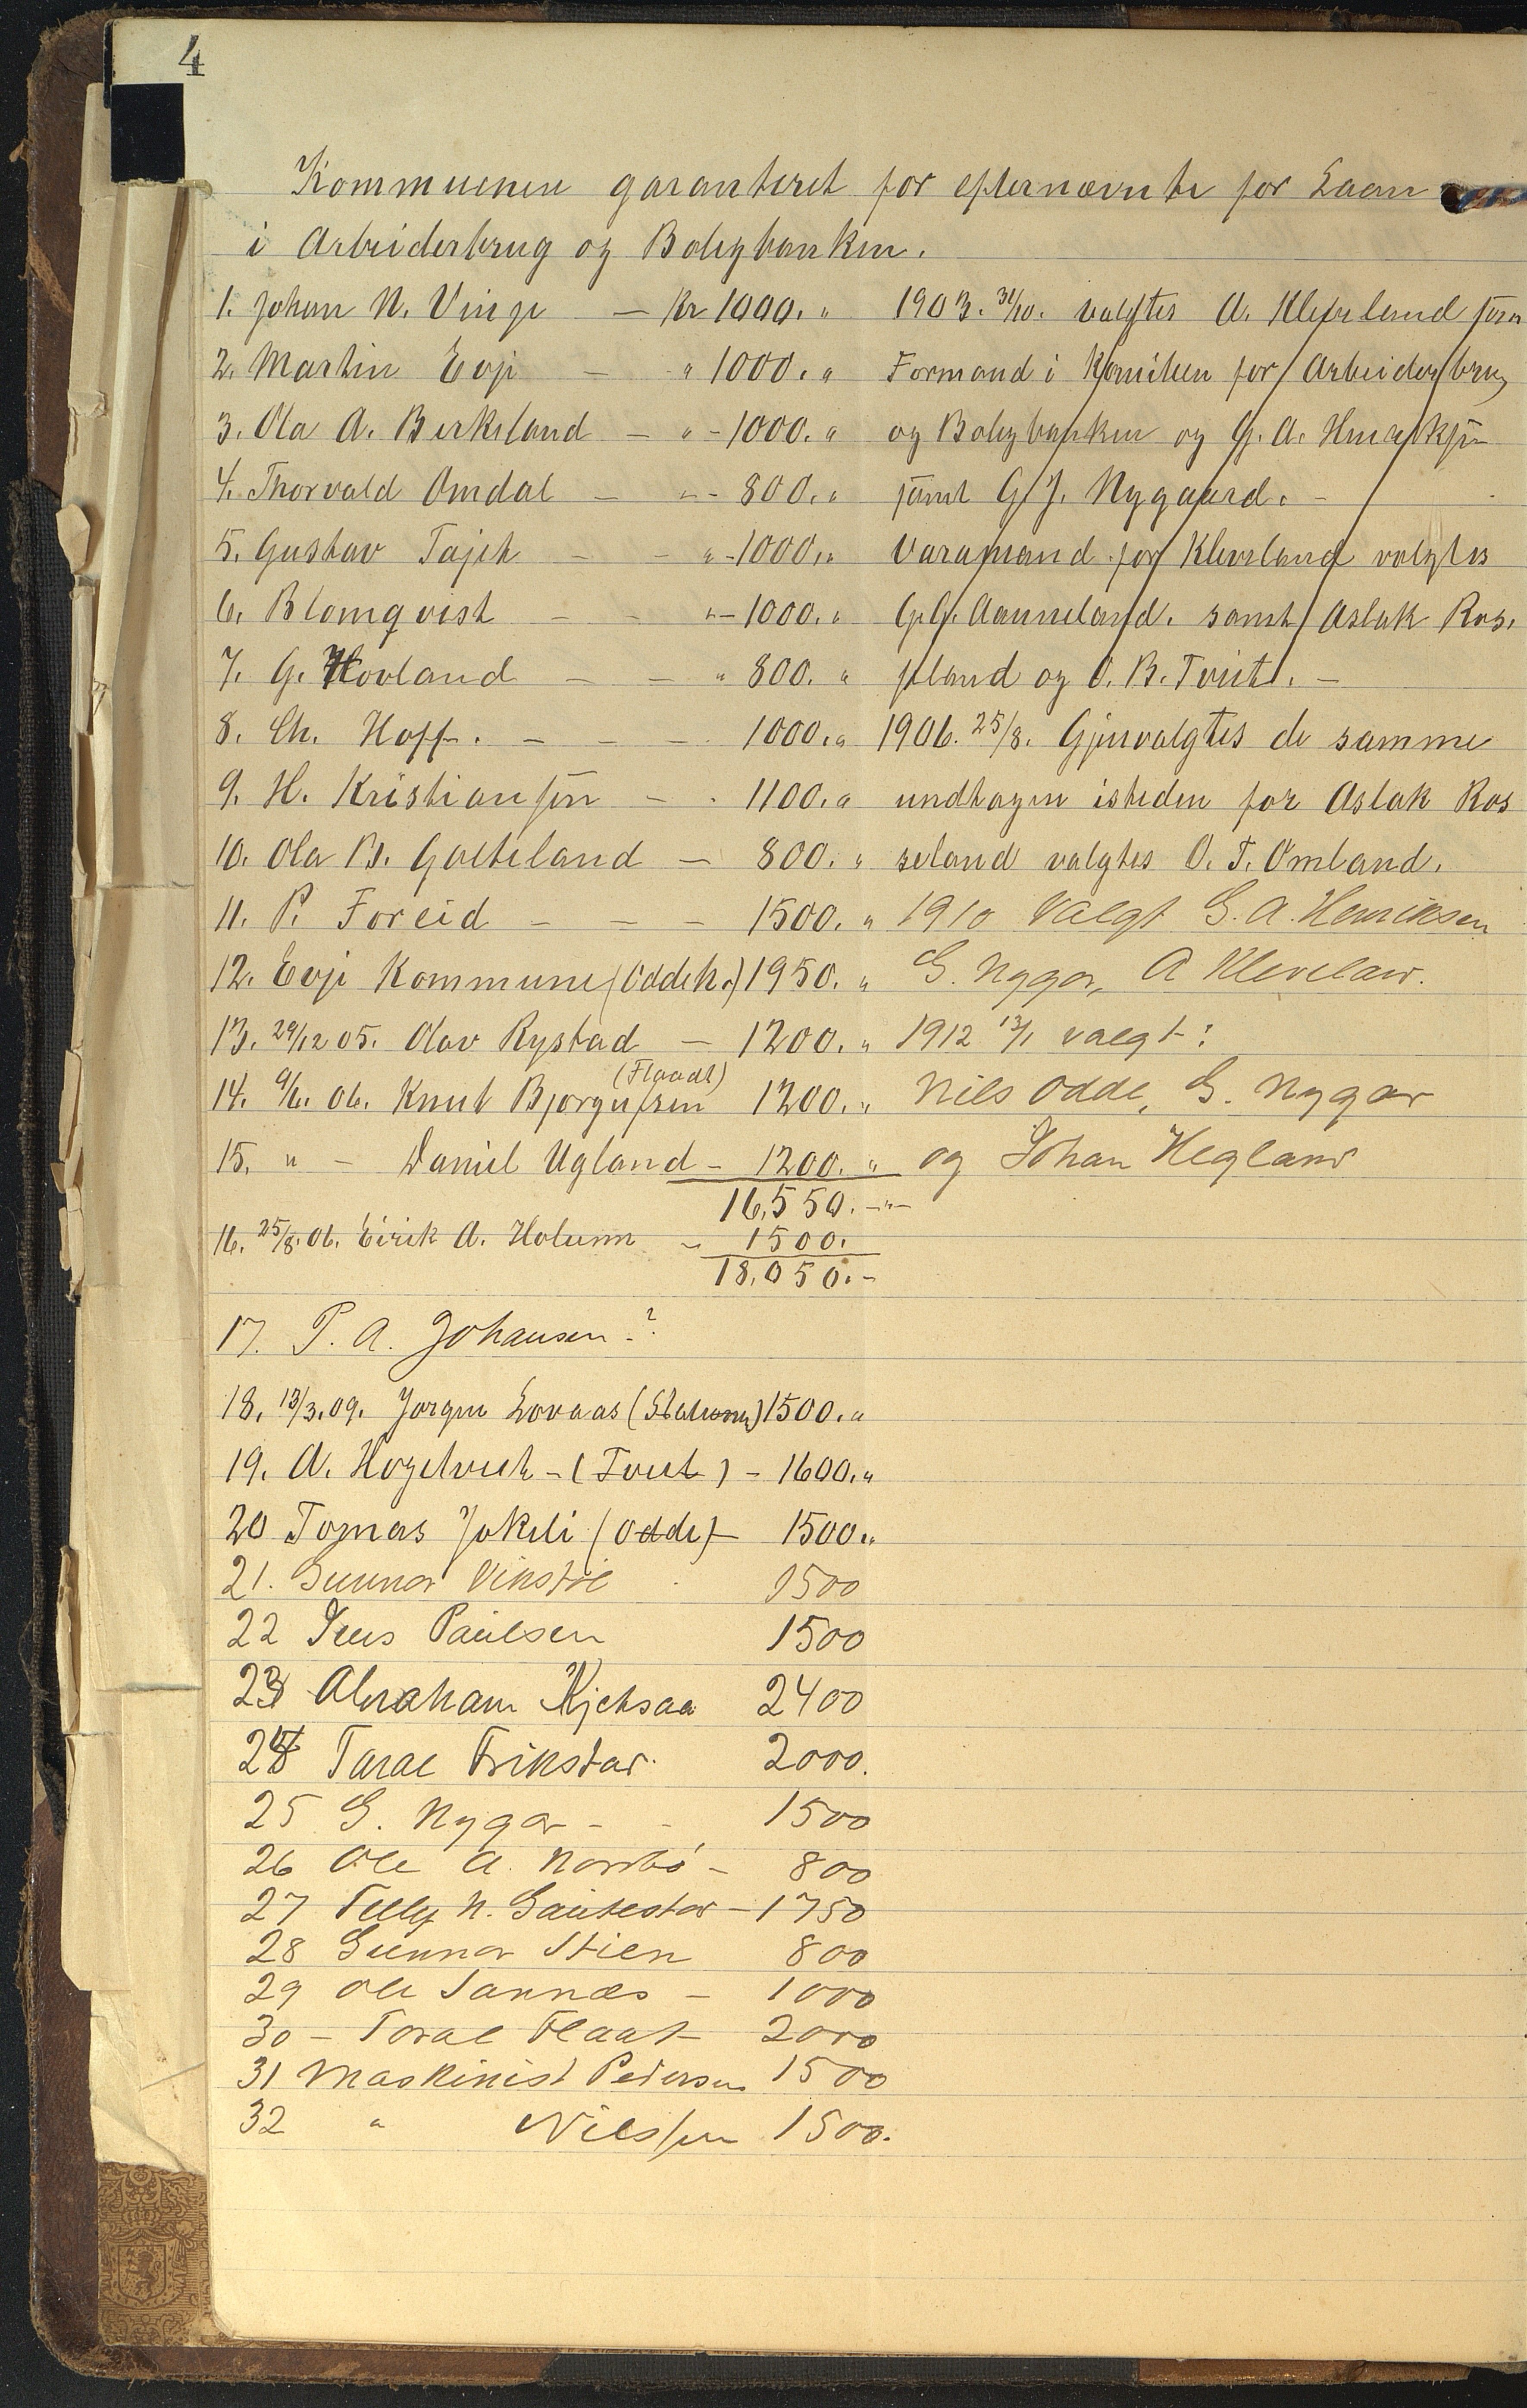 4
Kommunen garanteret for efternævnte for Laan
i Arbeiderbrug og Boligbanken.
1. Johan N. Vinje — Kr 1000. "
2. Martin Evje — " 1000. "
3. Ola A. Birkeland — " - 1000. "
4. Thorvald Omdal — " - 800. "
5. Gustav Tajet — — " - 1000. "
6. Blomqvist — — " - 1000. "
7. G. Hovland — — " 800. "
8. Ch. Hoff. — — — 1000. "
9. H. Kristiansen — - 1100. "
10. Ola B. Gauteland — 800. "
11. P. Foreid — — — 1500. "
12. Evje Kommune (Oddeh.) 1950. "
13. 29/12 05. Olav Rystad — 1200. "
(Flaadt)
14. 9/6. 06. Knut Bjorgufsen 1200. "
15. " - Daniel Ugland - 1200. "
16,550. - " -
16. 25/8. 06. Eirik A. Holum - 1500.
18,050. -
17. P. A. Johansen - ?
18. 13/3. 09. Jørgen Lovaas (Stationen) 1500. "
19. A. - (Tveit) - 1600. "
20 Tomas Jokeli (Odde) - 1500 "
21. Gunnar Vikstøl 1500
22 Jens Paulsen 1500
23 Abraham Kjetsaa 2400
24 Taral Trikstad. 2000.
25 G. Nygar - - 1500
26 Ole A. Nordbø - 800
27 Tellef N. Gautestad - 1750
28 Gunnar Stien 800
29 Ole Tannæs - 1000
30 - Toral Flaat 2000
31 Maskinist Pedersen 1500
32 " Nilssen 1500.
1903. 31/10. valgtes A. Klepeland som
Formand i Komiteen for Arbeiderbrug
og Boligbanken og G. A. Henriksen
samt G. J. Nygaard. -
Varamand for Kleveland valgtes
G. G. Aanneland. samt Aslak Ros.
seland og O. B. Tveit. -
1906. 25/8. Gjenvalgtes de samme
undtagen isteden for Aslak Ros
seland valgtes O. T. Omland.
1910 Valgt G. A. Henriksen
G. Nygar, A Klevelan.
1912 13/1 valgt:
Nils Odde, G. Nygar
og Johan Hegland